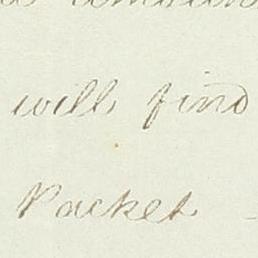 will find
Packet -